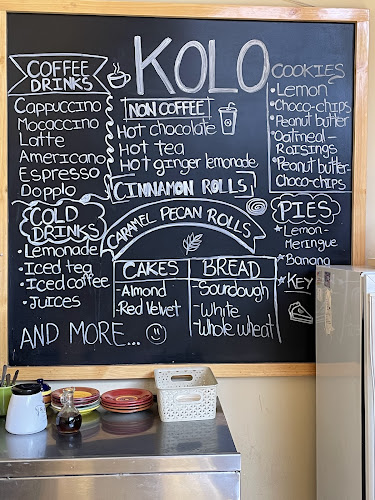 KOLO
COFFEE
DRINKS
Cappuccino
Mocaccino
Latte
Americano
Espresso
Dopplo
NON COFFEE
Hot chocolate
Hot tea
Hot ginger lemonade
COOKIES
• Lemon
• Choco-chips
• Peanut butter
• Oatmeal-
Raisings
• Peanut butter-
Choco-chips
CINNAMON ROLLS
CARAMEL PECAN ROLLS
COLD
DRINKS
Lemonade
• Iced tea
• Iced coffee
• Juices
PIES
Lemon-
Meringue
Banana
KEY
CAKES
- Almond
- Red Velvet
BREAD
- Sourdough
- White
- Whole wheat
AND MORE...